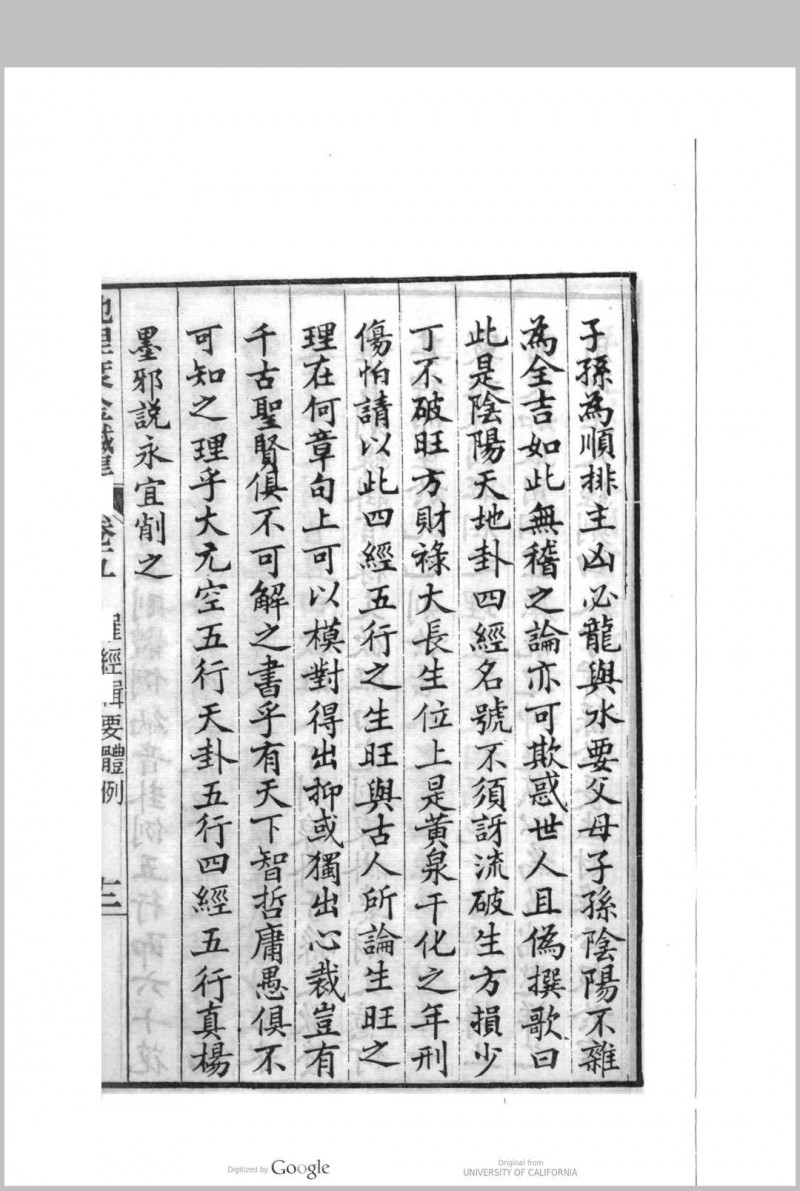 子孫為順排主凶必龍與水要父母子孫陰陽不雜
為全吉如此無稽之論亦可欺惑世人且偽撰歌曰
此是陰陽天地卦四經名號不須訝流破生方損少
丁不破旺方財祿大長生位上是黃泉干化之年刑
傷怕請以此四經五行之生旺與古人所論生旺之
理在何章句上可以模對得出抑或獨出心裁豈有
千古聖賢俱不可解之書乎有天下智哲庸愚俱不
可知之理乎大元空五行天卦五行四經五行真楊
墨邪說永宜削之
卷五 經輯要體例
Digitized by Google
Original from
UNIVERSITY OF CALIFORNIA